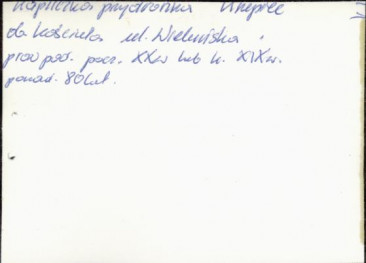 Kapliczka przydrożna
do kościoła ul. Wieluńska
prawpod. pocz. XXw lub k. XIXw.
ponad. 80 lat.